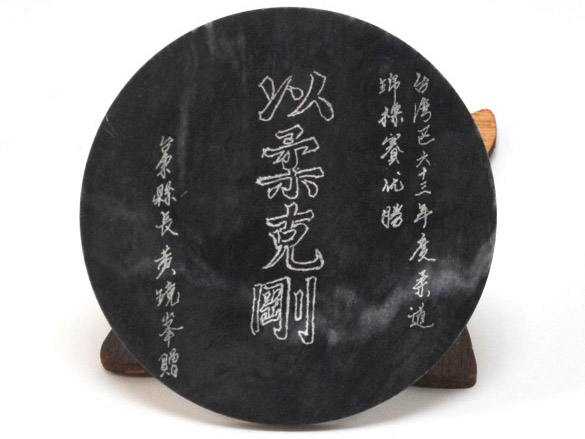 台湾区六十三年度柔道
錦標賽优勝
以柔克剛
縣長 黃鏡峯贈